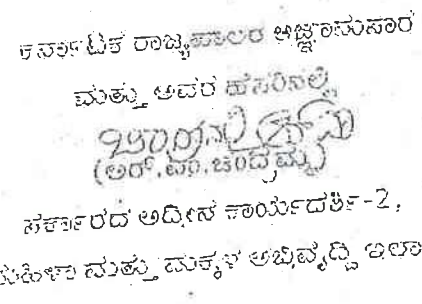 ಕರ್ನಾಟಕ ರಾಜ್ಯಪಾಲರ ಆಜ್ಞಾನುಸಾರ
ಮತ್ತು ಅವರ ಹೆಸರಿನಲ್ಲಿ
(ಆರ್.ಎಂ.ಚಂದ್ರಮ್ಮ)
ಸರ್ಕಾರದ ಅಧೀನ ಕಾರ್ಯದರ್ಶಿ-2,
ಮಹಿಳಾ ಮತ್ತು ಮಕ್ಕಳ ಅಭಿವೃದ್ಧಿ ಇಲಾ